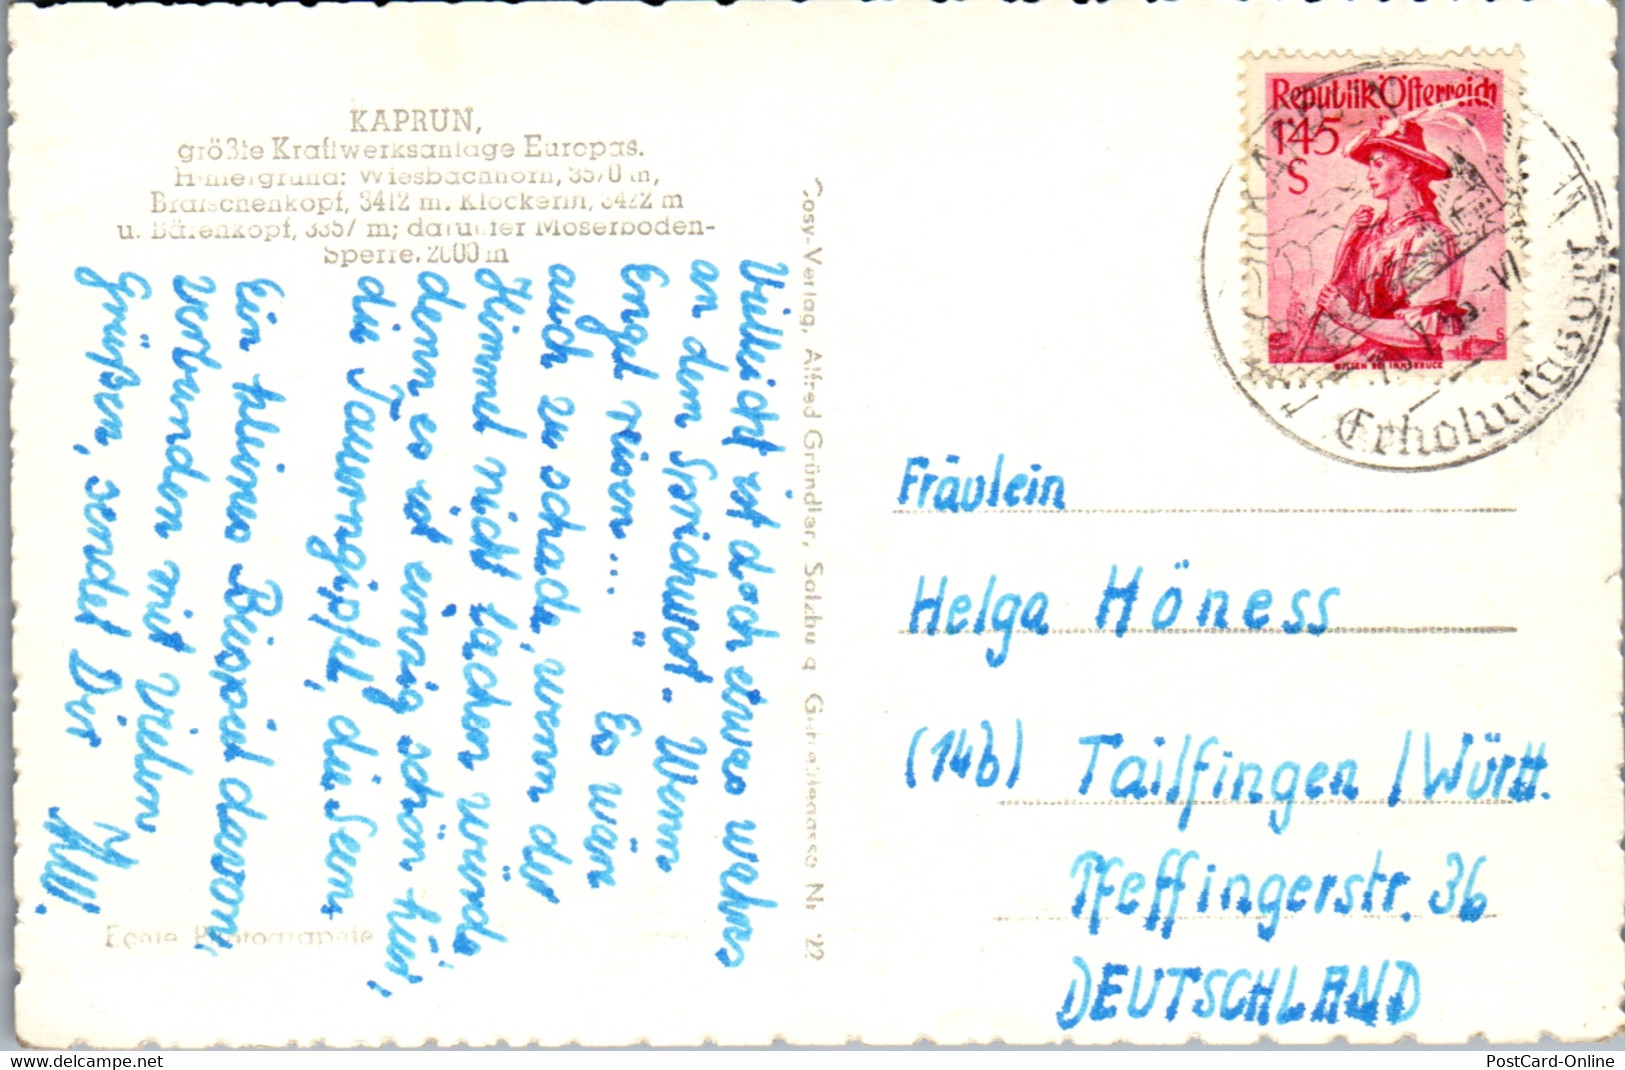 KAPRUN,
größte Kraftwerksanlage Europas.
Hintergrund: Wiesbachhorn, 3570 m,
Bratschenkopf, 3412 m. Klockerin, 3422 m
u. Bärenkopf, 3357 m; darunter Moserboden-
Sperre, 2000 m
Echte Photographie
Cosy-Verlag, Alfred Gründler, Salzburg Nr 22
Vielleicht ist doch etwas wahres
an dem Sprichwort „Wenn
Engel reisen..." Es wär
auch zu schade, wenn der
Himmel nicht lachen würde,
denn es ist einzig schön hier;
die Tauerngipfel, die Seen.
Ein kleines Beispiel davon,
verbunden mit vielen
Grüßen, sendet Dir
Republik Österreich
1·45
S
WILTEN BEI INNSBRUCK
Erholungsort
Fräulein
Helga Höness
(14b) Tailfingen / Württ.
Pfeffingerstr. 36
DEUTSCHLAND
hip.me/delc.me
PostCard-Online